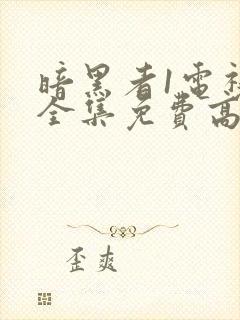 暗黑者1電
全集免費高
歪爽